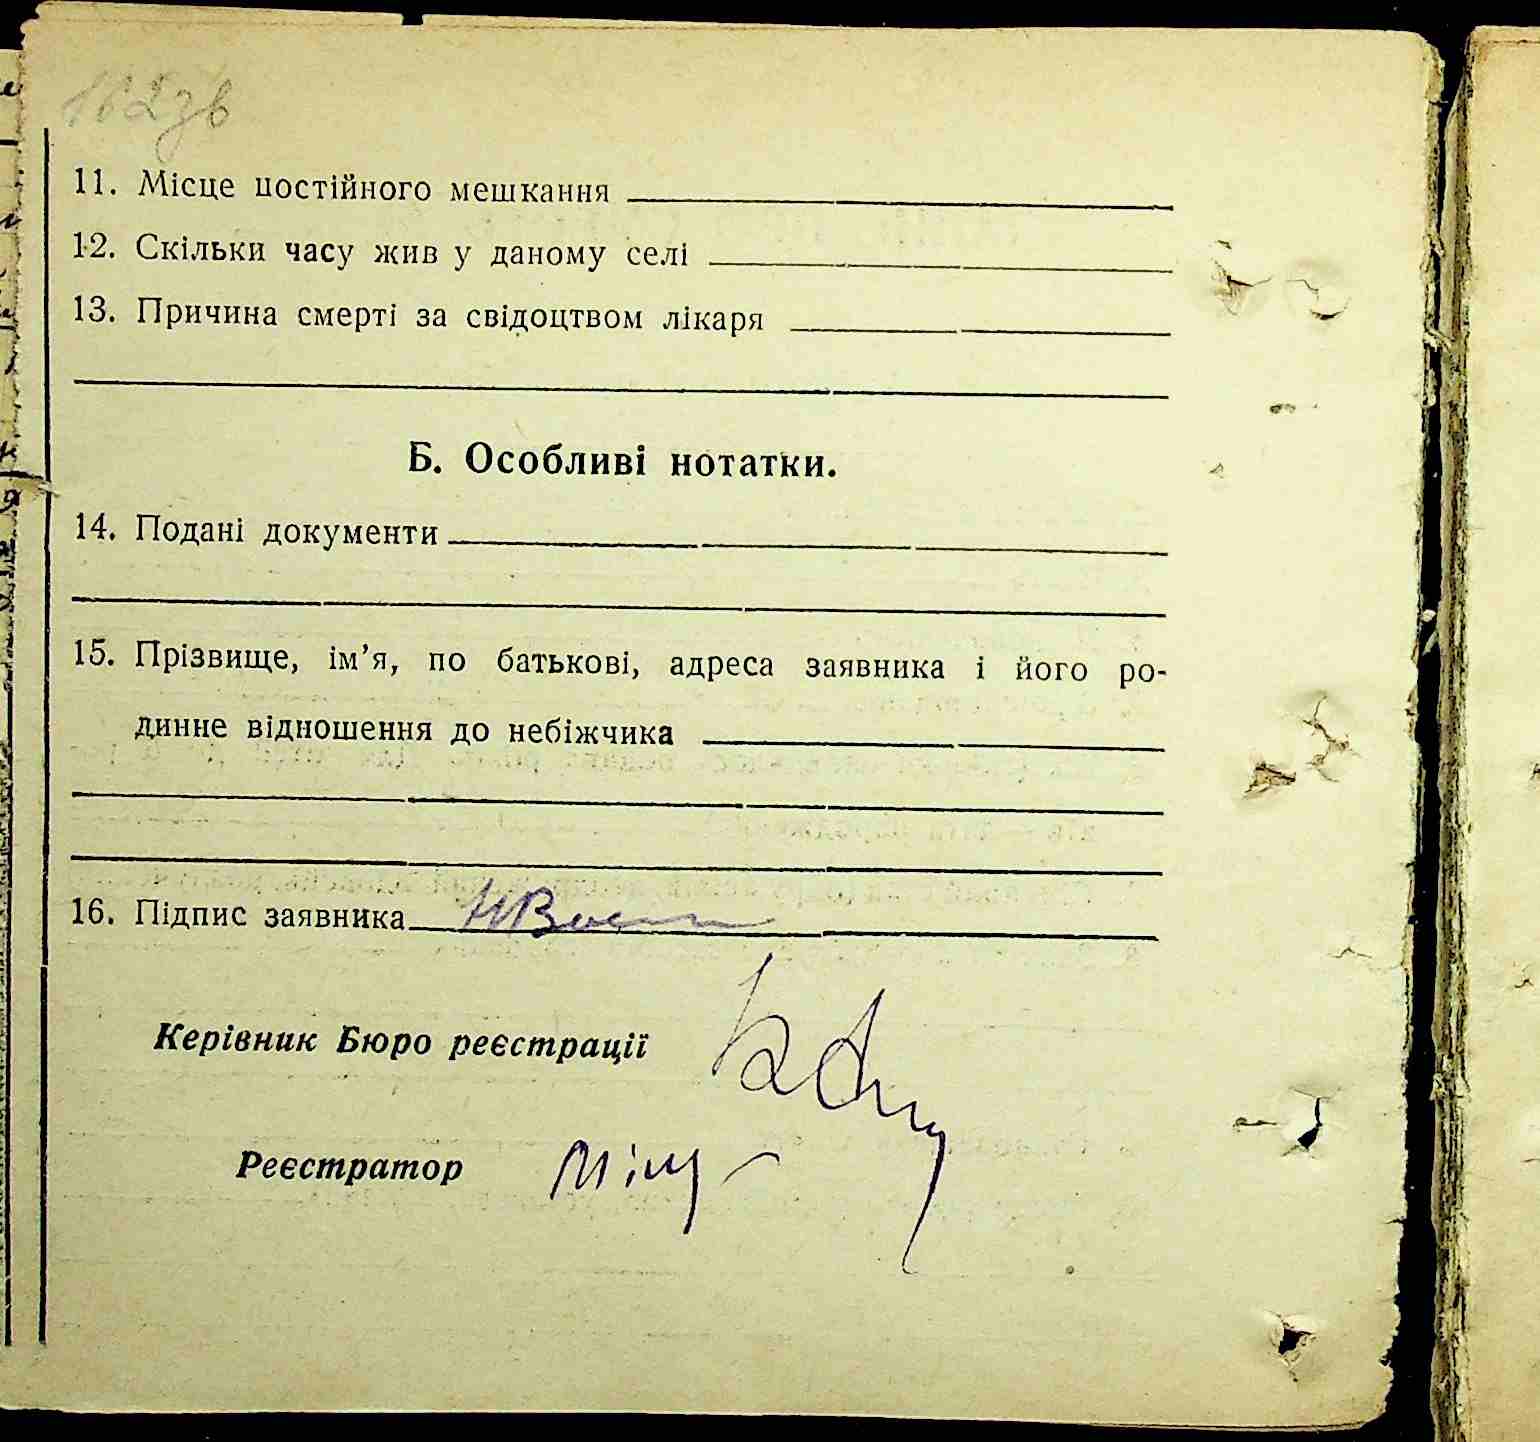 162зв
11. Місце постійного мешкання
12. Скільки часу жив у даному селі
13. Причина смерті за свідоцтвом лікаря
Б. Особливі нотатки.
14. Подані документи
15. Прізвище, ім’я, по батькові, адреса заявника і його ро-
динне відношення до небіжчика
16. Підпис заявника
Керівник Бюро реєстрації
Реєстратор